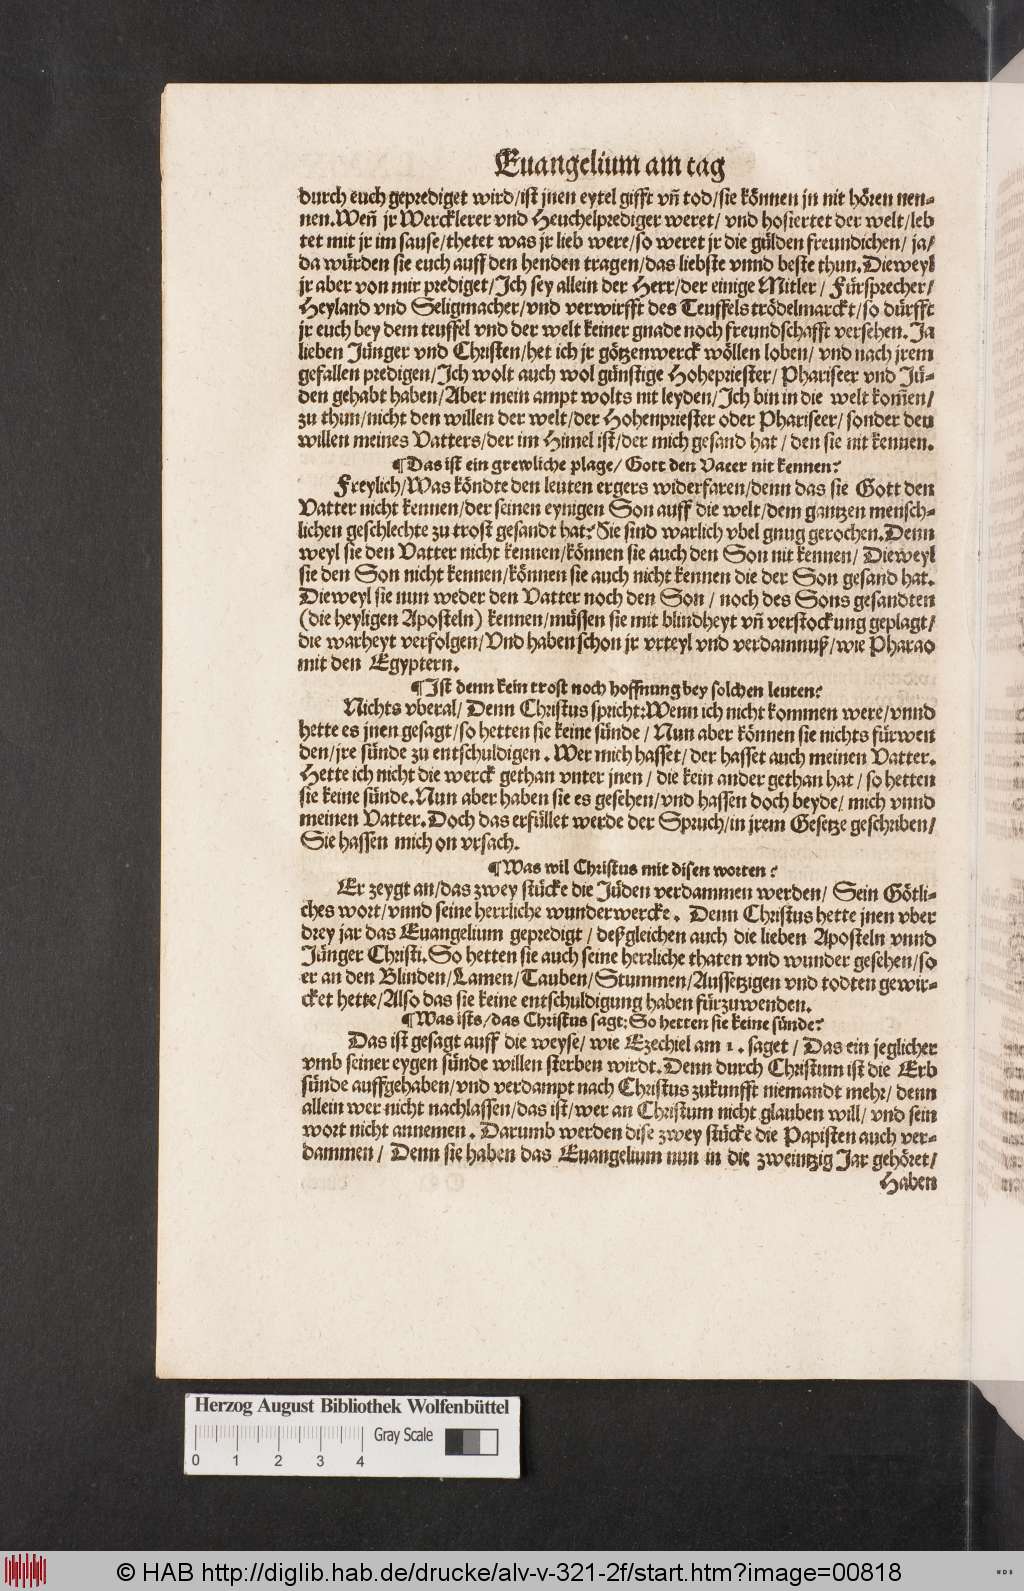 Euangelium am tag
durch euch geprediget wird/ist jnen eytel gifft vñ tod/sie können jn nit hören nen-
nen.Weñ jr Wercklerer vnd Heuchelprediger weret/ vnd hofiertet der welt/leb
tet mit jr im sause/thetet was jr lieb were/so weret jr die gülden freundichen/ ja/
da würden sie euch auff den henden tragen/das liebste vnnd beste thun.Dieweyl
jr aber von mir prediget/Ich sey allein der Herr/der einige Mitler/ Fürsprecher/
Heyland vnd Seligmacher/vnd verwirfft des Teuffels trödelmarckt/so dürfft
jr euch bey dem teuffel vnd der welt keiner gnade noch freundschafft versehen.Ja
lieben Jünger vnd Christen/het ich jr götzenwerck wöllen loben/ vnd nach jrem
gefallen predigen/Ich wolt auch wol günstige Hohepriester/ Phariseer vnd Jü-
den gehabt haben/Aber mein ampt wolts nit leyden/Ich bin in die welt kom̃en/
zu thun/nicht den willen der welt/der Hohenpriester oder Phariseer/ sonder den
willen meines Vatters/der im Himel ist/der mich gesand hat/ den sie nit kennen.
¶Das ist ein grewliche plage/ Gott den Vater nit kennen?
Freylich/Was köndte den leuten ergers widerfaren/denn das sie Gott den
Vatter nicht kennen/der seinen eynigen Son auff die welt/dem gantzen mensch-
lichen geschlechte zu trost gesandt hat? Sie sind warlich vbel gnug gerochen.Denn
weyl sie den Vatter nicht kennen/können sie auch den Son nit kennen/ Dieweyl
sie den Son nicht kennen/können sie auch nicht kennen die der Son gesand hat.
Dieweyl sie nun weder den Vatter noch den Son / noch des Sons gesandten
(die heyligen Aposteln) kennen/müssen sie mit blindheyt vñ verstockung geplagt/
die warheyt verfolgen/Vnd haben schon jr vrteyl vnd verdamnuß/wie Pharao
mit den Egyptern.
¶Ist denn kein trost noch hoffnung bey solchen leuten?
Nichts vberal/ Denn Christus spricht:Wenn ich nicht kommen were/vnnd
hette es jnen gesagt/so hetten sie keine sünde / Nun aber können sie nichts fürwen
den/jre sünde zu entschuldigen . Wer mich hasset/ der hasset auch meinen Vatter.
Hette ich nicht die werck gethan vnter jnen / die kein ander gethan hat / so hetten
sie keine sünde.Nun aber haben sie es gesehen/vnd hassen doch beyde/ mich vnnd
meinen Vatter.Doch das erfüllet werde der Spruch/in jrem Gesetze geschriben/
Sie hassen mich on vrsach.
¶Was wil Christus mit disen worten?
Er zeygt an/das zwey stücke die Jüden verdammen werden/ Sein Götli-
ches wort/vnnd seine herrliche wunderwercke . Denn Christus hette jnen vber
drey jar das Euangelium gepredigt / deßgleichen auch die lieben Aposteln vnnd
Jünger Christi.So hetten sie auch seine herrliche thaten vnd wunder gesehen/so
er an den Blinden/Lamen/Tauben/Stummen/Aussetzigen vnd todten gewir-
cket hette/Also das sie keine entschuldigung haben fürzuwenden.
¶Was ists/das Christus sagt:So hetten sie keine sünde?
Das ist gesagt auff die weyse/ wie Ezechiel am 1 . saget / Das ein jeglicher
vmb seiner eygen sünde willen sterben wirdt.Denn durch Christum ist die Erb
sünde auffgehaben/vnd verdampt nach Christus zukunfft niemandt mehr/ denn
allein wer nicht nachlassen/das ist/wer an Christum nicht glauben will/ vnd sein
wort nicht annemen . Darumb werden dise zwey stücke die Papisten auch ver-
dammen/ Denn sie haben das Euangelium nun in die zweintzig Jar gehöret/
Haben
Herzog August Bibliothek Wolfenbüttel
Gray Scale
0 1 2 3 4
© HAB http://diglib.hab.de/drucke/alv-v-321-2f/start.htm?image=00818